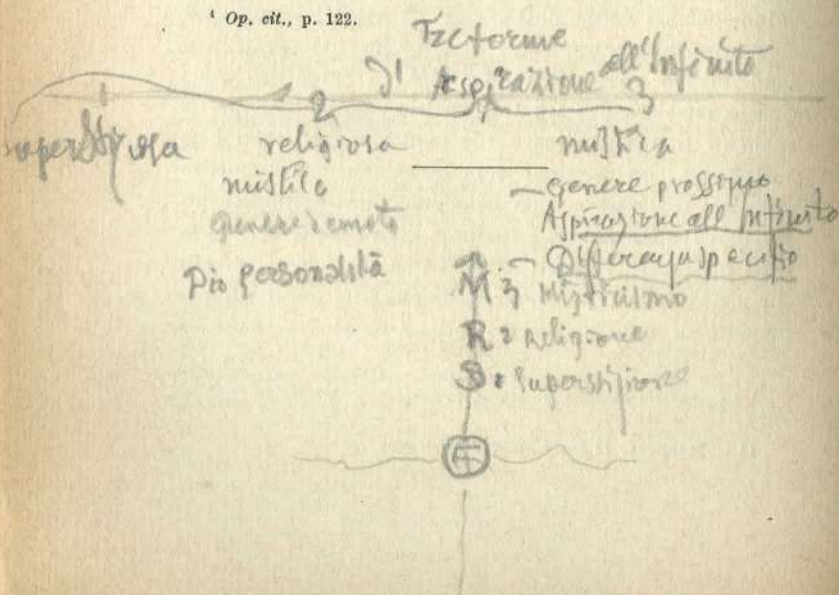 ⁴ Op. cit., p. 122.
Tre forme
d'Aspirazione all'Infinito
1 2 3
superstiziosa religiosa mistica
mistica
genere remoto
Dio personalità
– genere prossimo
Aspirazione all'Infinito
– Differenza specifica
M 3 Misticismo
R 2 Religione
S 1 Superstizione